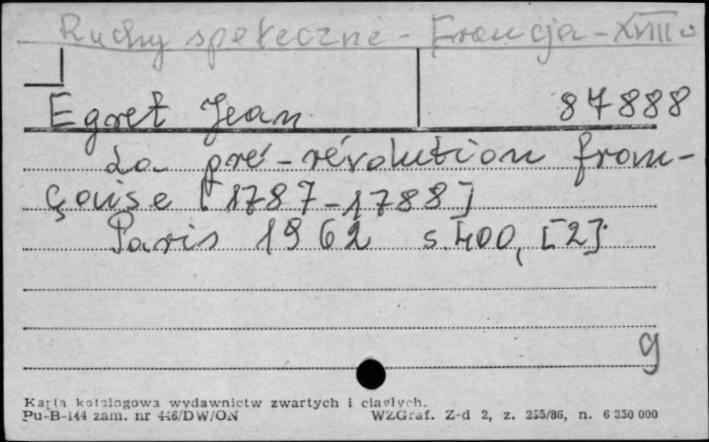 Ruchy społeczne - Francja - XVIII w
Egret Jean 87888
La pré-révolution fran-
çaise [1787-1788]
Paris 1962 s. 400, [2].
g
Karta katalogowa wydawnictw zwartych i ciągłych.
Pu-B-144 zam. nr 446/DW/ON WZGraf. Z-d 2, z. 255/86, n. 6 350 000